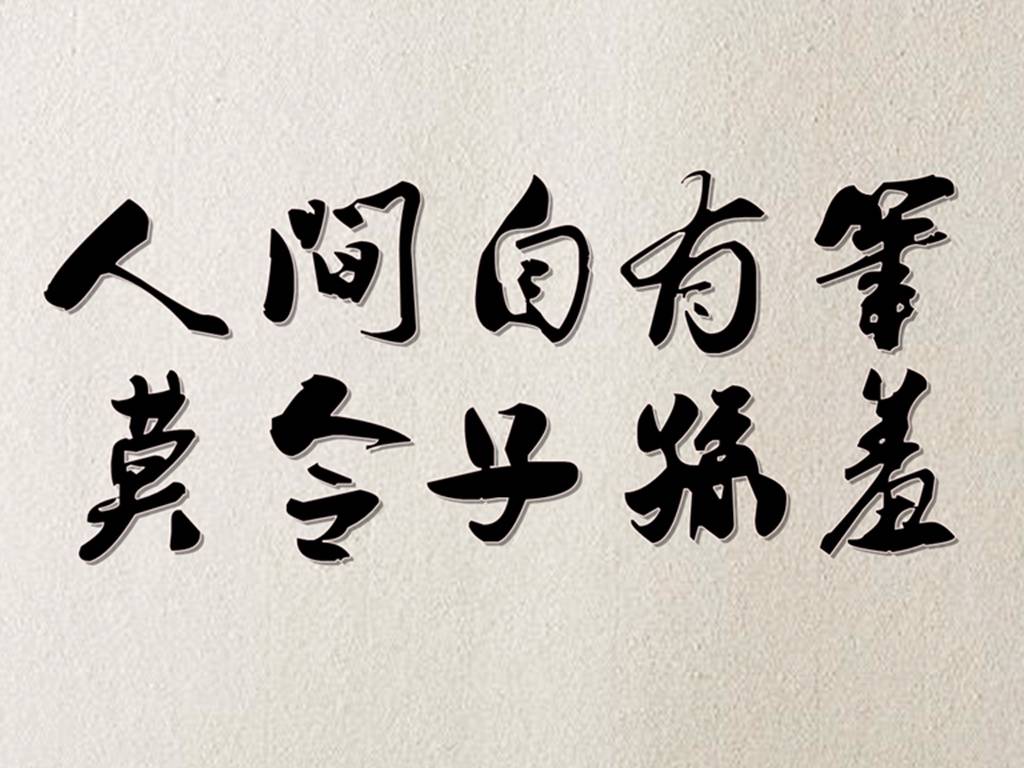 人間自有筆
莫令子孫羞